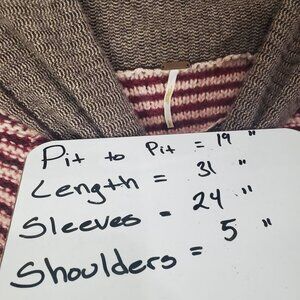 Pit to Pit = 19 "
Length = 31 "
Sleeves - 24 "
Shoulders = 5 "